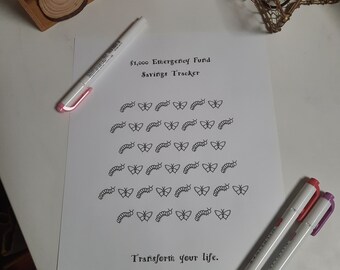 £1,000 Emergency Fund
Savings Tracker
Transform your life.